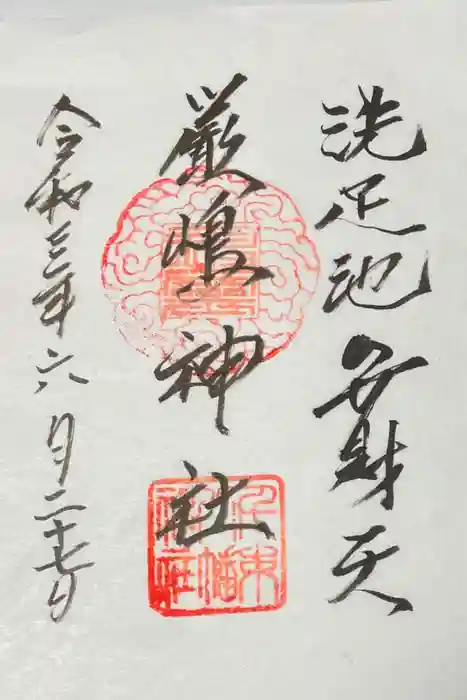 洗足池弁財天
厳嶋神社
令和三年六月二十七日